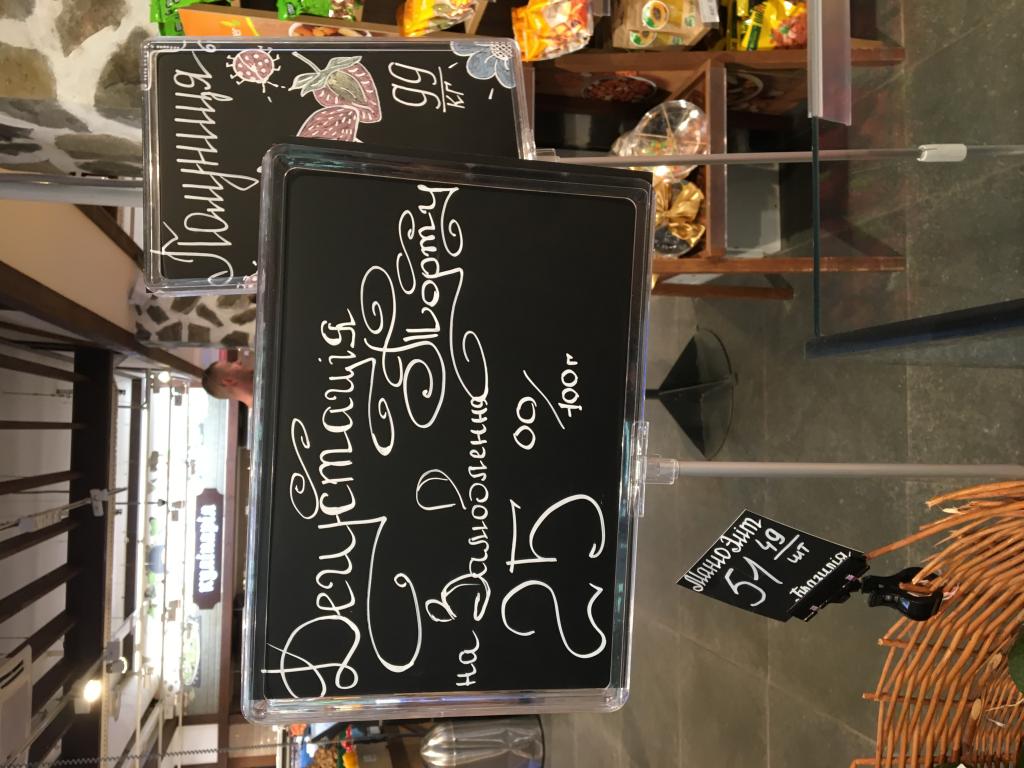 Полуниця
99
кг
Дегустація
Торту
на Замовлення
25 00/100г
Манго Кіт
51 49
шт
Бразилія
кулінарія